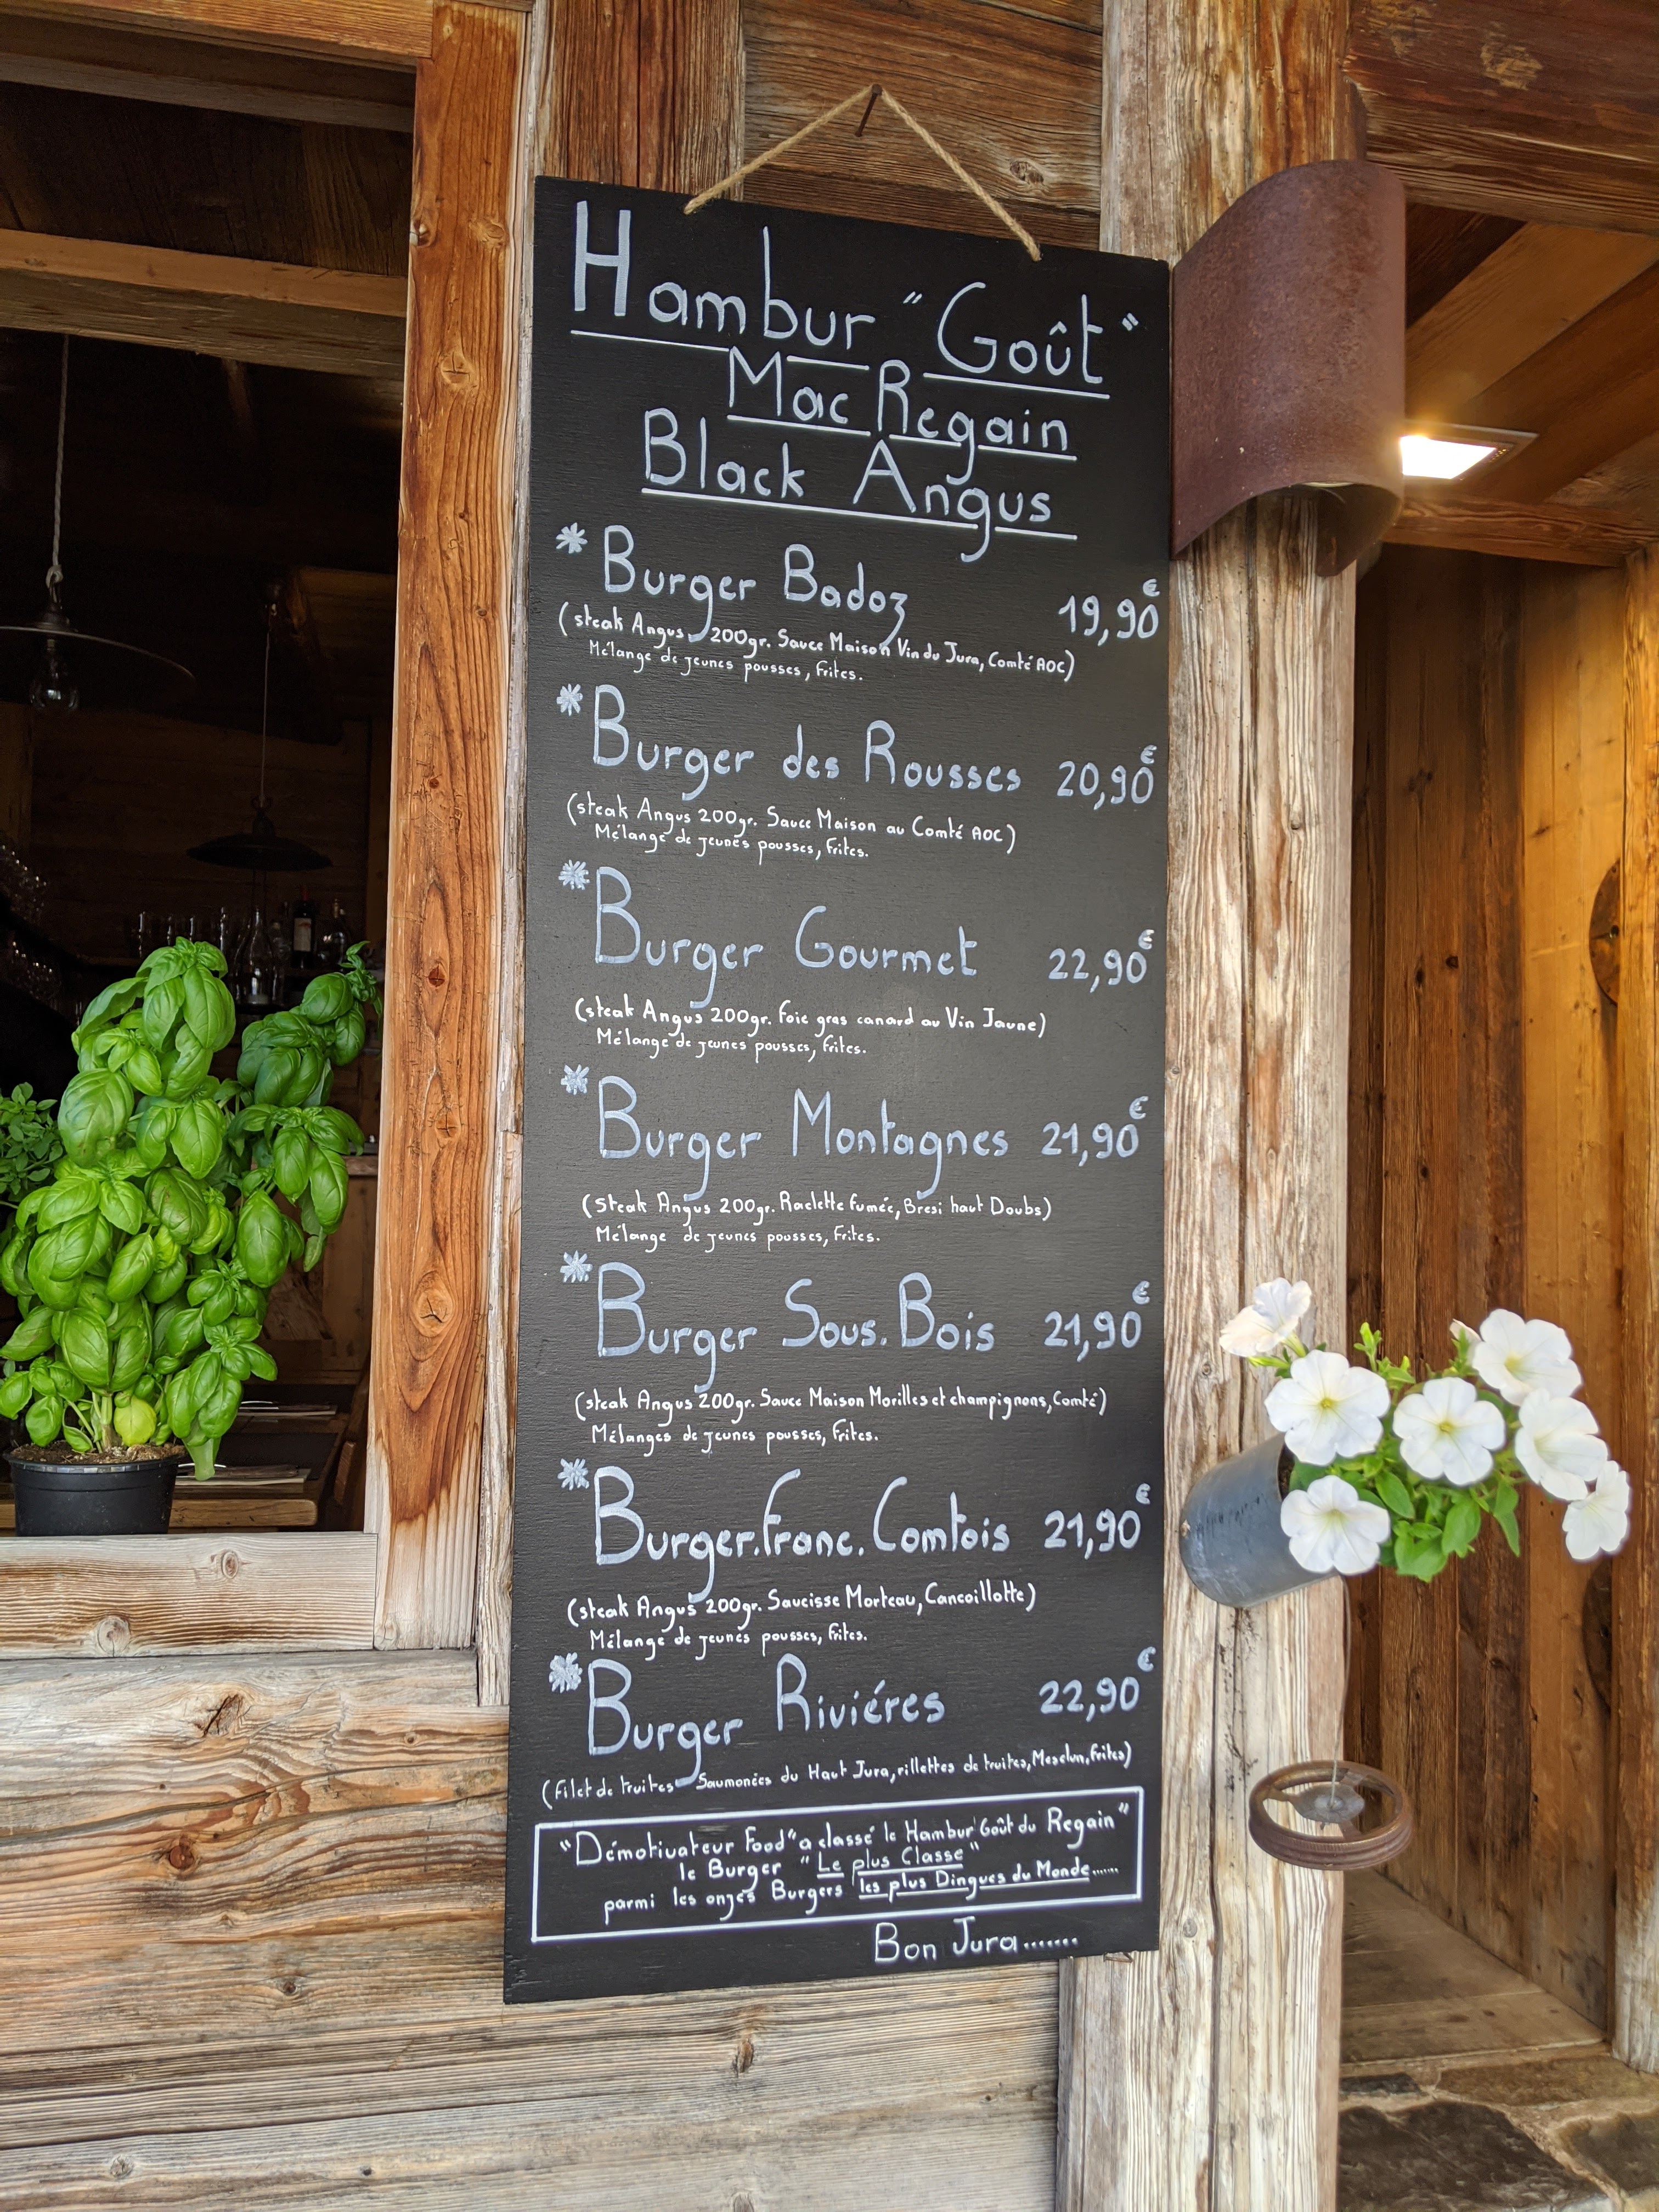 Hambur "Goût"
Mac Regain
Black Angus
* Burger Badoz 19,90€
(steak Angus 200gr. Sauce Maison Vin du Jura, Comté AOC)
Mélange de jeunes pousses, frites.
* Burger des Rousses 20,90€
(steak Angus 200gr. Sauce Maison au Comté AOC)
Mélange de jeunes pousses, frites.
* Burger Gourmet 22,90€
(steak Angus 200gr. Foie gras canard au Vin Jaune)
Mélange de jeunes pousses, frites.
* Burger Montagnes 21,90€
(Steak Angus 200gr. Raclette fumée, Bresi haut Doubs)
Mélange de jeunes pousses, frites.
* Burger Sous.Bois 21,90€
(steak Angus 200gr. Sauce Maison Morilles et champignons, Comté)
Mélanges de jeunes pousses, frites.
* Burger.franc.Comtois 21,90€
(steak Angus 200gr. Saucisse Morteau, Cancoillotte)
Mélange de jeunes pousses, frites.
* Burger Riviéres 22,90€
(filet de truites Saumonées du Haut Jura, rillettes de truites, Mesclun, frites)
"Démotivateur Food" a classé le Hambur'Goût du Regain"
le Burger "Le plus Classe"
parmi les onzes Burgers les plus Dingues du Monde......
Bon Jura.......